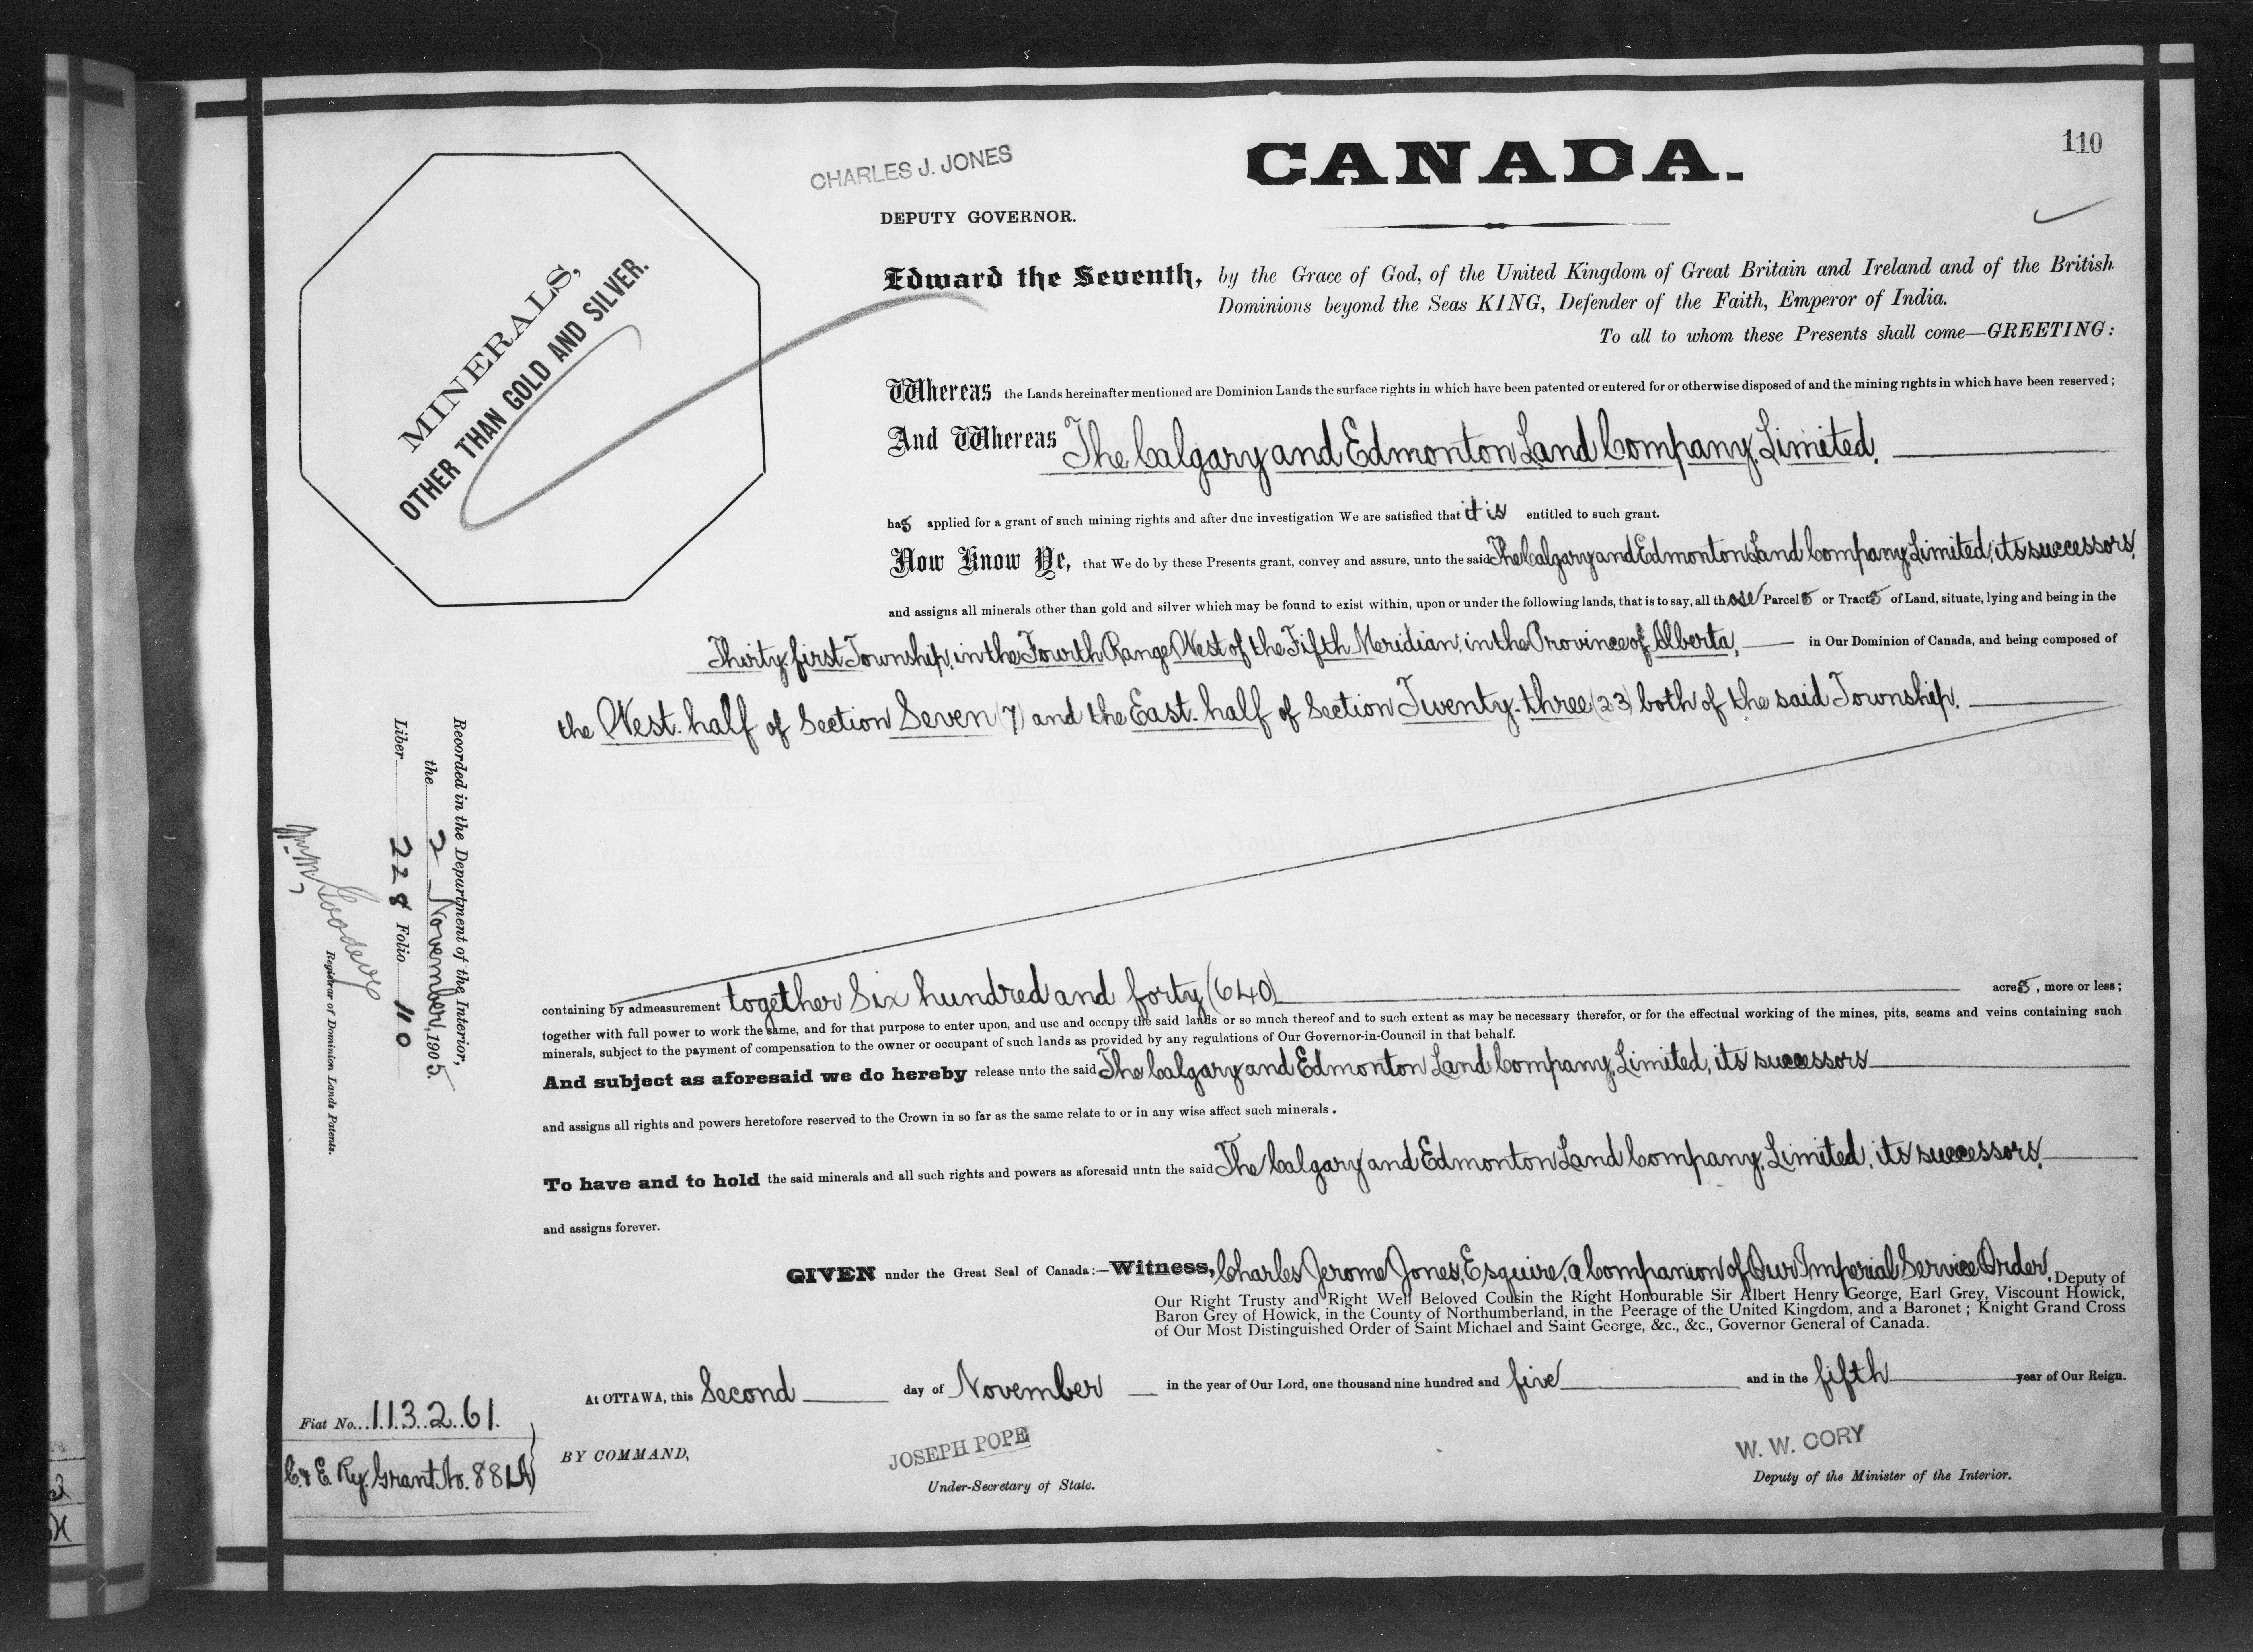 110
CANADA.
CHARLES J. JONES
DEPUTY GOVERNOR.
MINERALS,
OTHER THAN GOLD AND SILVER.
Edward the Seventh, by the Grace of God, of the United Kingdom of Great Britain and Ireland and of the British
Dominions beyond the Seas KING, Defender of the Faith, Emperor of India.
To all to whom these Presents shall come—GREETING:
Whereas the Lands hereinafter mentioned are Dominion Lands the surface rights in which have been patented or entered for or otherwise disposed of and the mining rights in which have been reserved;
And Whereas The Calgary and Edmonton Land Company, Limited,
has applied for a grant of such mining rights and after due investigation We are satisfied that it is entitled to such grant.
Now Know Ye, that We do by these Presents grant, convey and assure, unto the said The Calgary and Edmonton Land Company, Limited, its successors,
and assigns all minerals other than gold and silver which may be found to exist within, upon or under the following lands, that is to say, all those Parcels or Tracts of Land, situate, lying and being in the
Thirty-first Township, in the Fourth Range West of the Fifth Meridian, in the Province of Alberta, in Our Dominion of Canada, and being composed of
the West-half of Section Seven (7) and the East-half of Section Twenty-three (23) both of the said Township.
containing by admeasurement together Six hundred and forty (640) acres, more or less;
together with full power to work the same, and for that purpose to enter upon, and use and occupy the said lands or so much thereof and to such extent as may be necessary therefor, or for the effectual working of the mines, pits, seams and veins containing such
minerals, subject to the payment of compensation to the owner or occupant of such lands as provided by any regulations of Our Governor-in-Council in that behalf.
And subject as aforesaid we do hereby release unto the said The Calgary and Edmonton Land Company, Limited, its successors
and assigns all rights and powers heretofore reserved to the Crown in so far as the same relate to or in any wise affect such minerals.
To have and to hold the said minerals and all such rights and powers as aforesaid untn the said The Calgary and Edmonton Land Company, Limited, its successors,
and assigns forever.
GIVEN under the Great Seal of Canada:—Witness, Charles Jerome Jones, Esquire, a Companion of Our Imperial Service Order, Deputy of
Our Right Trusty and Right Well Beloved Cousin the Right Honourable Sir Albert Henry George, Earl Grey, Viscount Howick,
Baron Grey of Howick, in the County of Northumberland, in the Peerage of the United Kingdom, and a Baronet; Knight Grand Cross
of Our Most Distinguished Order of Saint Michael and Saint George, &c., &c., Governor General of Canada.
At OTTAWA, this Second day of November in the year of Our Lord, one thousand nine hundred and five and in the fifth year of Our Reign.
BY COMMAND,
JOSEPH POPE
Under-Secretary of State.
W. W. CORY
Deputy of the Minister of the Interior.
Recorded in the Department of the Interior,
the 2 November, 1905.
Liber 228 Folio 110
Wm. M. Goodeve
Registrar of Dominion Lands Patents.
Fiat No. 113261.
C. & E. Ry. Grant No. 881A